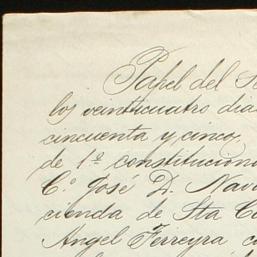 Papel del
los veinticuatro dia
cincuenta y cinco,
de 1ª constitucion
C.º José D. Nava
cienda de Sta Ca
Angel Ferreyra co